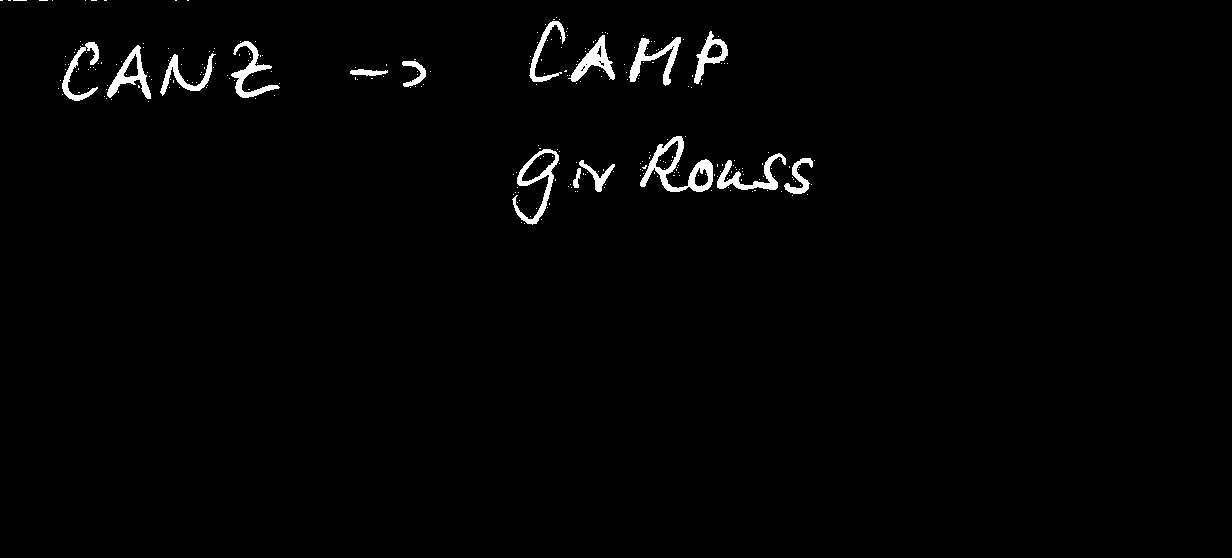 CANZ -> CAMP
giv Rouss